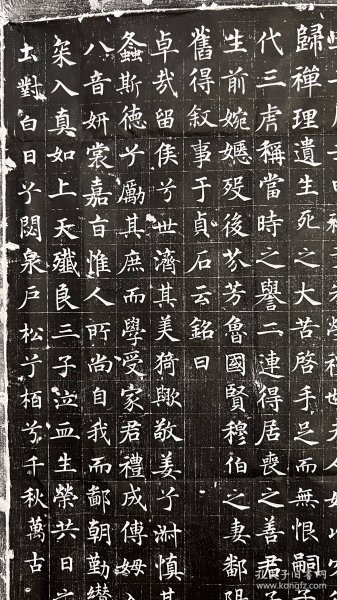 歸禪理遺生死之大苦啓手足而無恨嗣子
代三虎稱當時之譽二連得居喪之善君子
生前婉嬺歿後芬芳魯國賢穆伯之妻鄒陽
舊得叙事于貞石云銘曰
卓哉留侯兮世濟其美猗歟敬姜兮淋慎其
螽斯德兮勵其庶而學受家君禮成傅姆入
八音妍裳嘉旨惟人所尚自我而鄣朝勤
架入真如上天殲良三子泣血生榮共日
出對白日兮閟泉戶松兮栢兮千秋萬古
孔夫子旧书网